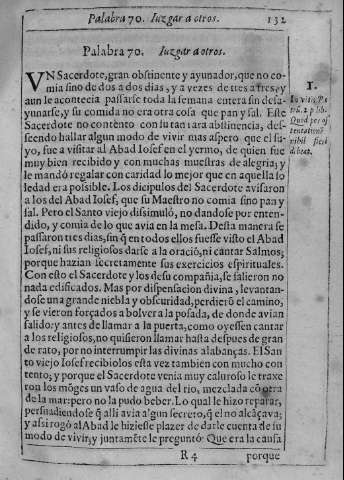 Palabra 70. Iuzgar a otros. 132
Palabra 70. Iuzgar a otros.
VN Sacerdote, gran obstinente y ayunador, que no co-
mia sino de dos a dos dias, y a vezes de tres a tres, y
aun le acontecia passarse toda la semana entera sin desa-
yunarse, y su comida no era otra cosa que pan y sal. Este
Sacerdote no contento con su tan rara abstinencia, des-
seando hallar algun modo de vivir mas aspero que el su-
yo, fue a visitar al Abad Iosef en el yermo, de quien fue
muy bien recibido y con muchas muestras de alegria; y
le mandó regalar con caridad lo mejor que en aquella so
ledad era possible. Los dicipulos del Sacerdote avisaron
a los del Abad Iosef, que su Maestro no comia sino pan y
sal. Pero el Santo viejo dissimuló, no dandose por enten-
dido, y comia de lo que avia en la mesa. Desta manera se
passaron tres dias, sin q̃ en todos ellos fuesse visto el Abad
Iosef, ni sus religiosos darse a la oraciõ, ni cantar Salmos;
porque hazian secretamente sus exercicios espirituales.
Con esto el Sacerdote y los de su compañia, se salieron no
nada edificados. Mas por dispensacion divina, levantan-
dose una grande niebla y obscuridad, perdierõ el camino,
y se vieron forçados a bolver a la posada, de donde avian
salido: y antes de llamar a la puerta, como oyessen cantar
a los religiosos, no quisieron llamar hasta despues de gran
de rato, por no interrumpir las divinas alabanças. El San
to viejo Iosef recibiolos esta vez tambien con mucho con
tento; y porque el Sacerdote venia muy caluroso le traxe
ron los mõges un vaso de agua del rio, mezclada cõ otra
de la mar: pero no la pudo beber. Lo qual le hizo reparar,
persuadiendose q̃ alli avia algun secreto, q̃ el no alcãçava;
y assi rogó al Abad le hiziesse plazer de darle cuenta de su
modo de vivir, y juntamẽte le preguntó: Que era la causa
R 4 porque
1.
In vitis Pa